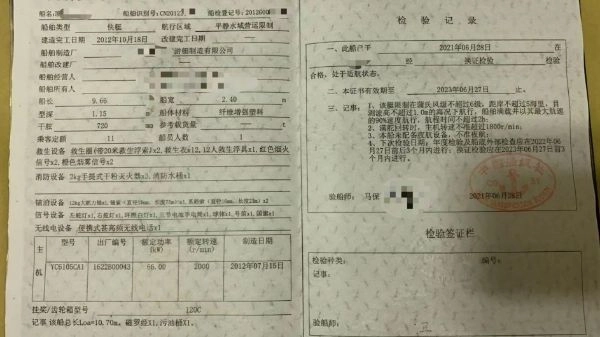 船名
船舶识别号 CN2012
船检登记号 2012G00
船舶类型 快艇 航行区域 平静水域营运限制
建造完工日期 2012年10月18日 改建完工日期
船舶制造厂 游艇制造有限公司
船舶改建厂
船舶经营人
船舶所有人
船长 9.66 m 船宽 2.40 m
型深 1.15 m 船体材料 纤维增强塑料
干舷 720 mm 参考载货量 t
乘客定额 11 人 船员人数 1 人
救生设备 救生圈(带20米救生浮索)x2,救生衣x12,12人救生浮具x1,红色烟火
信号x2,橙色烟雾信号x2
消防设备 2kg手提式干粉灭火器x3,消防水桶x1
信号设备
无线电设备 便携式甚高频无线电话x1
主机
型号 出厂编号 额定功率(kW) 额定转速(r/min) 制造日期
YC6105CA1 1622B00043 66.00 2000 2012年07月15日
挂桨/齿轮箱型号 120C
记事 该船总长Loa=10.70m。磁罗经X1,污油桶X1。
检验记录
一、此船已于 2021年06月28日 在
经 换证检验 检验
合格,处于适航状态。
二、本证书有效期至 2023年06月27日 止。
三、记事:
1、该艇限制在蒲氏风级不超过6级,距岸不超过5海里,目
测波高不超过1.0m的海况下航行,船舶满载并以其最大航速
的90%速度航行,航程时间不超过2h;
2、满舵回转时,主机转速不准超过1800r/min;
3、本船未配备夜航设备,不准夜航;
4、下次检验日期:年度检验及船底外部检查应在2022年06
月27日前后3个月内进行;换证检验在2023年06月27日前3个
月内进行。
验船师: 马保
2021年06月28日
检验签证栏
检验种类:
记事:
验船师: